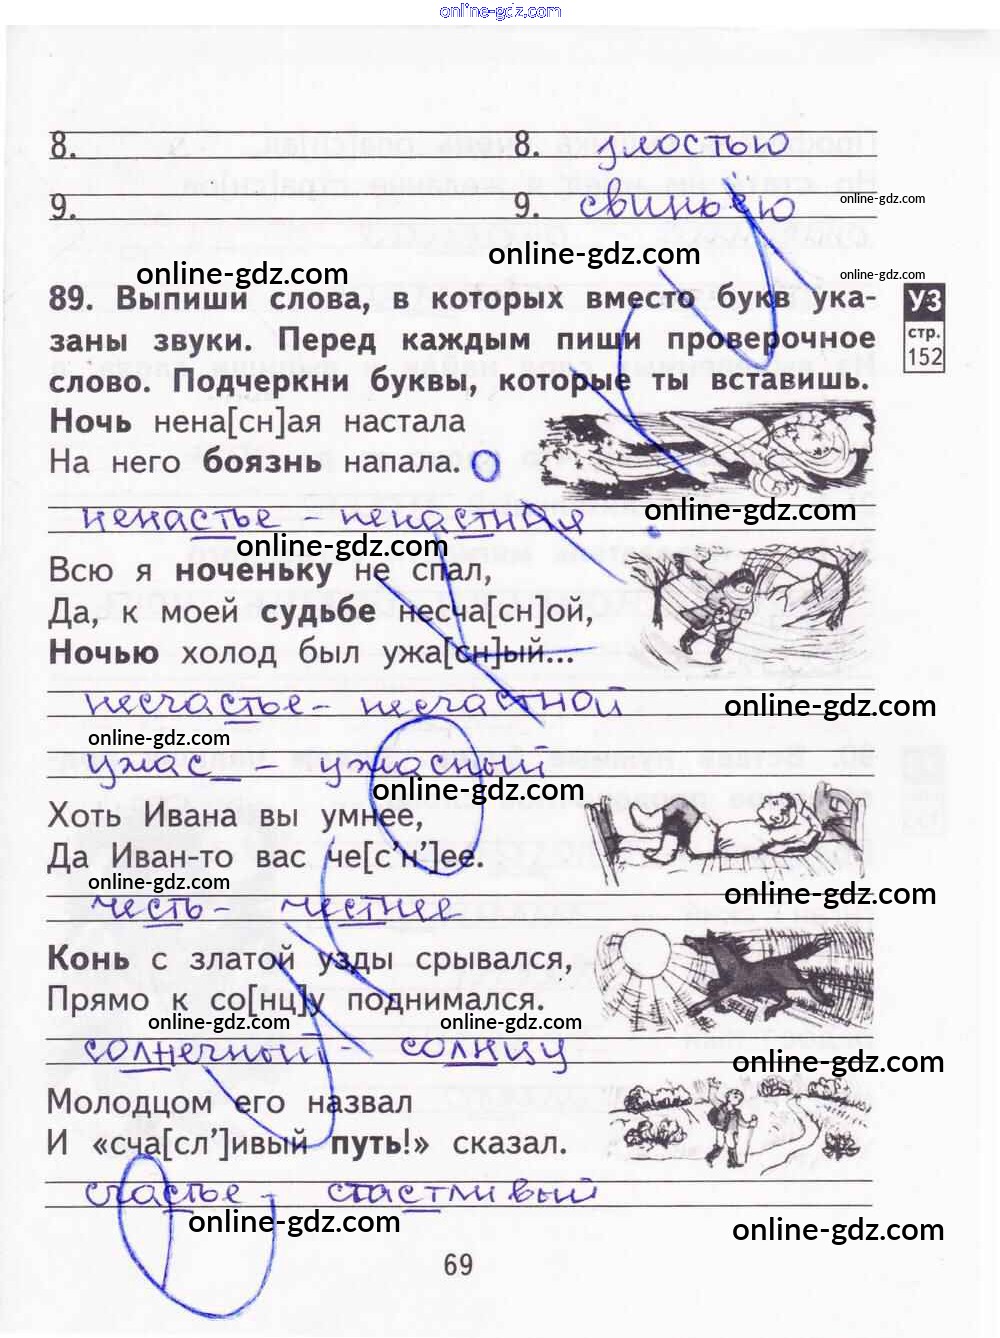 online-gdz.com
8. 8. улостью
9. 9. свиньёю
online-gdz.com
online-gdz.com
online-gdz.com
online-gdz.com
89. Выпиши слова, в которых вместо букв ука-
заны звуки. Перед каждым пиши проверочное
слово. Подчеркни буквы, которые ты вставишь.
УЗ
стр.
152
Ночь нена[сн]ая настала
На него боязнь напала.
ненастье - ненастная
online-gdz.com
online-gdz.com
Всю я ноченьку не спал,
Да, к моей судьбе несча[сн]ой,
Ночью холод был ужа[сн]ый...
несчастье - несчастной
online-gdz.com
online-gdz.com
ужас - ужасный
online-gdz.com
Хоть Ивана вы умнее,
Да Иван-то вас че[с’н’]ее.
online-gdz.com
online-gdz.com
честь - честнее
Конь с златой узды срывался,
Прямо к со[нц]у поднимался.
online-gdz.com
online-gdz.com
солнечный - солнцу
online-gdz.com
Молодцом его назвал
И «сча[сл’]ивый путь!» сказал.
счастье - стастливый
online-gdz.com
online-gdz.com
69